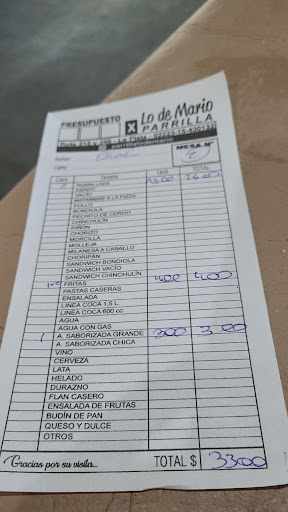 PRESUPUESTO
X
Lo de Mario
PARRILLA
parrillalodemario
Señor:
Calle:
MESA Nº
2
Cant. Detalle Unit. TOTAL
2 PARRILLADA 1300 2600
ASADO
VACÍO
MATAMBRE A LA PIZZA
POLLO
BONDIOLA
PECHITO DE CERDO
CHINCHULÍN
RIÑON
CHORIZO
MORCILLA
MOLLEJA
MILANESA A CABALLO
CHORIPÁN
SANDWICH BONDIOLA
SANDWICH VACÍO
SANDWICH CHINCHULÍN
FRITAS 400 400
PASTAS CASERAS
ENSALADA
LINEA COCA 1,5 L.
LINEA COCA 600 cc
AGUA
AGUA CON GAS
1 A. SABORIZADA GRANDE 300 300
A. SABORIZADA CHICA
VINO
CERVEZA
LATA
HELADO
DURAZNO
FLAN CASERO
ENSALADA DE FRUTAS
BUDÍN DE PAN
QUESO Y DULCE
OTROS
Gracias por su visita... TOTAL $ 3300